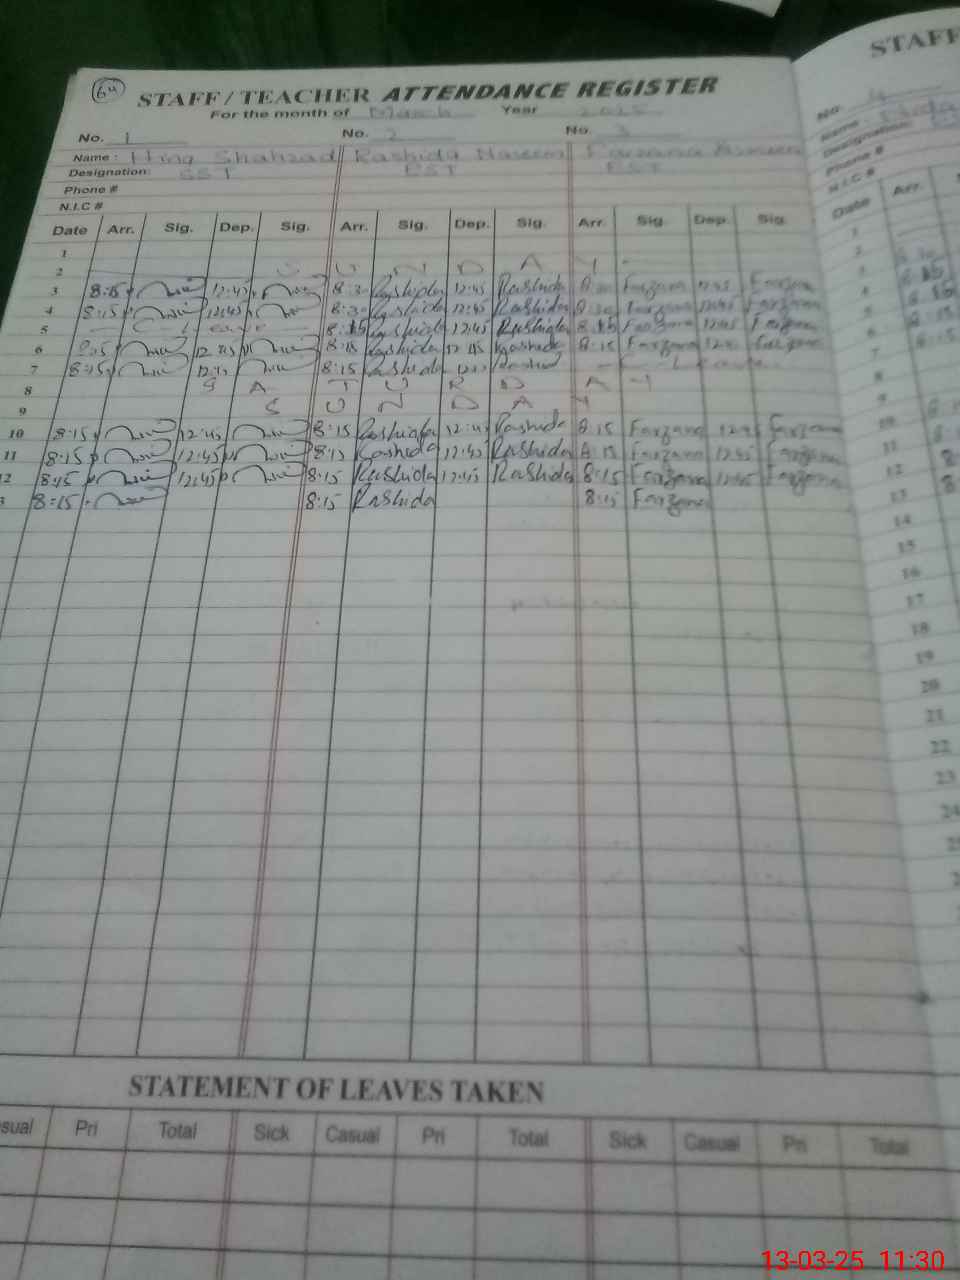 64
STAFF / TEACHER ATTENDANCE REGISTER STAFF
For the month of March Year 2025
No. 1 No. 2 No. 3 No. 4
Name : Hina Shahzad Rashida Naseem Farzana Name :
Designation: SST EST EST Designation:
Phone # Phone #
N.I.C # N.I.C #
Date Arr. Sig. Dep. Sig. Arr. Sig. Dep. Sig. Arr. Sig. Dep. Sig. Date Arr.
1
2 S U N D A Y
3 8:15 12:45 8:30 Rashida 12:45 Rashida Farzana 12:45 Farzana
4 8:15 12:45 8:30 Rashida 12:45 Rashida Farzana 12:45 Farzana
5 C-Leave 8:15 Rashida 12:45 Rashida 8:15 Farzana 12:45 Farzana
6 8:15 12:45 8:15 Rashida 12:45 Rashida 8:15 Farzana 12:45 Farzana
7 8:15 12:45 8:15 Rashida 12:45 Rashid
8 S A T U R D A Y
9 S U N D A Y
10 8:15 12:45 8:15 Rashida 12:45 Rashida 8:15 Farzana 12:45 Farzana
11 8:15 12:45 8:15 Rashida 12:45 Rashida 8:15 Farzana 12:45 Farzana
12 8:15 12:45 8:15 Rashida 12:45 Rashida 8:15 Farzana 12:45 Farzana
3 8:15 8:15 Rashida 8:15 Farzana
13
14
15
16
17
18
19
20
21
22
23
24
STATEMENT OF LEAVES TAKEN
sual Pri Total Sick Casual Pri Total Sick Casual Pri Total
13-03-25 11:30